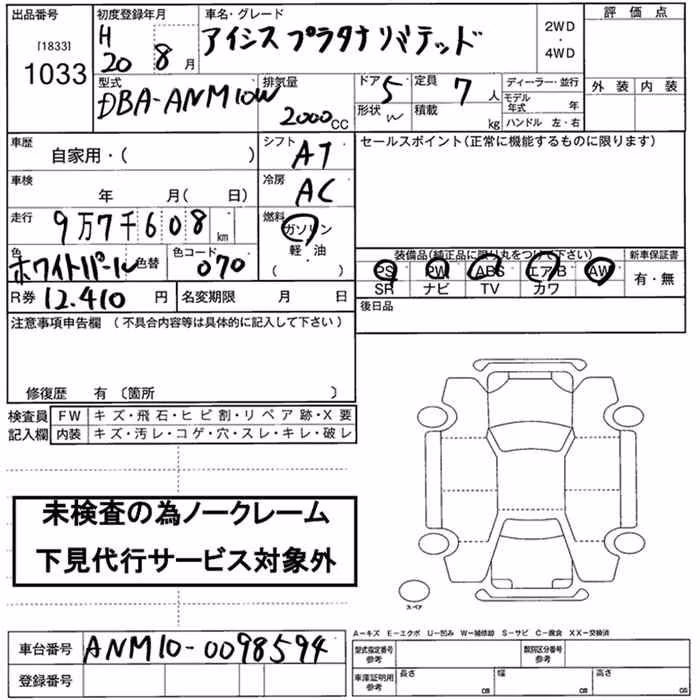 出品番号 初度登録年月 車名・グレード 評価点
[1833] H アイシス プラタナ リミテッド 2WD
1033 20 8月 ・ 4WD
型式 排気量 ドア 5 定員 7人 ディーラー・並行 外装 内装
DBA-ANM10W 2000CC 形状 W 積載 kg モデル年式 年
ハンドル 左・右
車歴 自家用・( ) シフト AT セールスポイント(正常に機能するものに限ります)
車検 年 月( 日) 冷房 AC
走行 9万7千608km 燃料 ガソリン
軽・油
( )
色 ホワイトパール 色替 色コード 070 装備品(純正品に限り丸をつけて下さい) 新車保証書
PS PW ABS エアB AW 有・無
R券 12.410円 名変期限 月 日 SR ナビ TV カワ
注意事項申告欄 (不具合内容等は具体的に記入して下さい) 後日品
修復歴 有 〔箇所 〕
検査員 FW キズ・飛石・ヒビ割・リペア跡・X要
記入欄 内装 キズ・汚レ・コゲ・穴・スレ・キレ・破レ
未検査の為ノークレーム
下見代行サービス対象外
スペア
A－キズ E－エクボ U－凹み W－補修跡 S－サビ C－腐食 XX－交換済
車台番号 ANM10-0098594 型式指定番号 参考 類別区分番号
登録番号 車庫証明用 参考 長さ cm 幅 cm 高さ cm